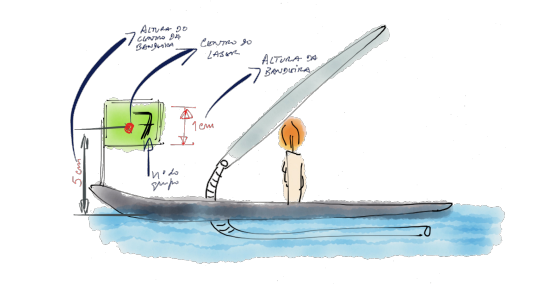 ALTURA DO
CENTRO DA
BANDEIRA
CENTRO DO
LASER
ALTURA DA
BANDEIRA
7
1 cm
5 cm
nº do
grupo